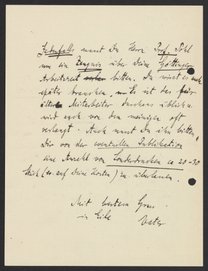 Jedenfalls musst Du Herrn Prof. Pohl
um ein Zeugnis über Deine Göttinger
Arbeitszeit bitten. Du wirst es noch
später brauchen, wie es bei
Mitarbeitern durchaus üblich
wird auch von den meisten oft
verlangt. Auch musst Du ihn bitten,
Dir von der eventuellen Publikation
eine Anzahl von Sonderdrucken ca 20-30
Stück (ev. auf Deine Kosten) zu überlassen.
Mit bestem Gruss
in Eile
Vater